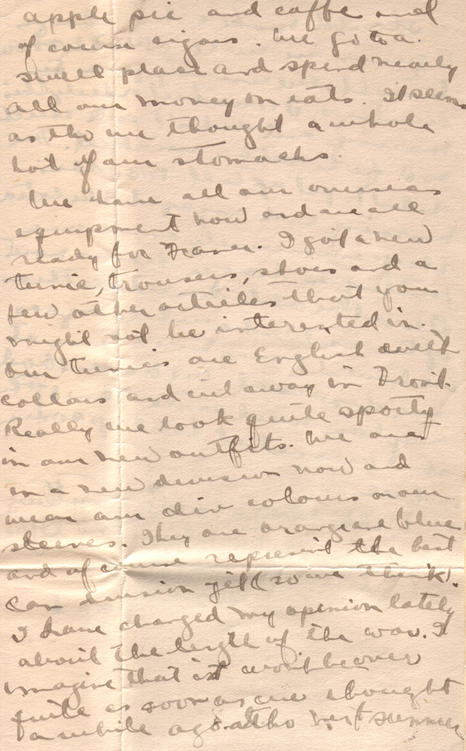 apple pie and caffe and
of course cigars. We go to a
small place and spend nearly
all our money on eats. It seems
as tho we thought a whole
lot of our stomachs.
We have all our overseas
equipment now and are all
ready for France. I got a new
tunic, trousers, shoes and a
few other articles that you
might not be interested in.
Our tunics are English with
collars and cut away in front.
Really we look quite sporty
in our new outfits. We are
in a new division now and
wear our div colours on our
sleeves. They are orange and blue
and of course represent the best
Can division yet (so we think).
I have changed my opinion lately
about the length of the war. I
imagine that it won't be over
quite as soon as we thought
a while ago. altho next summer